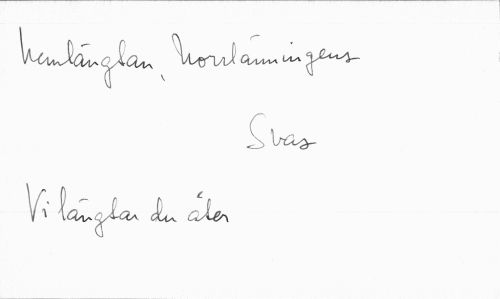 Hemlängtan, Norrlänningens
Svar
Vi längtar du åter